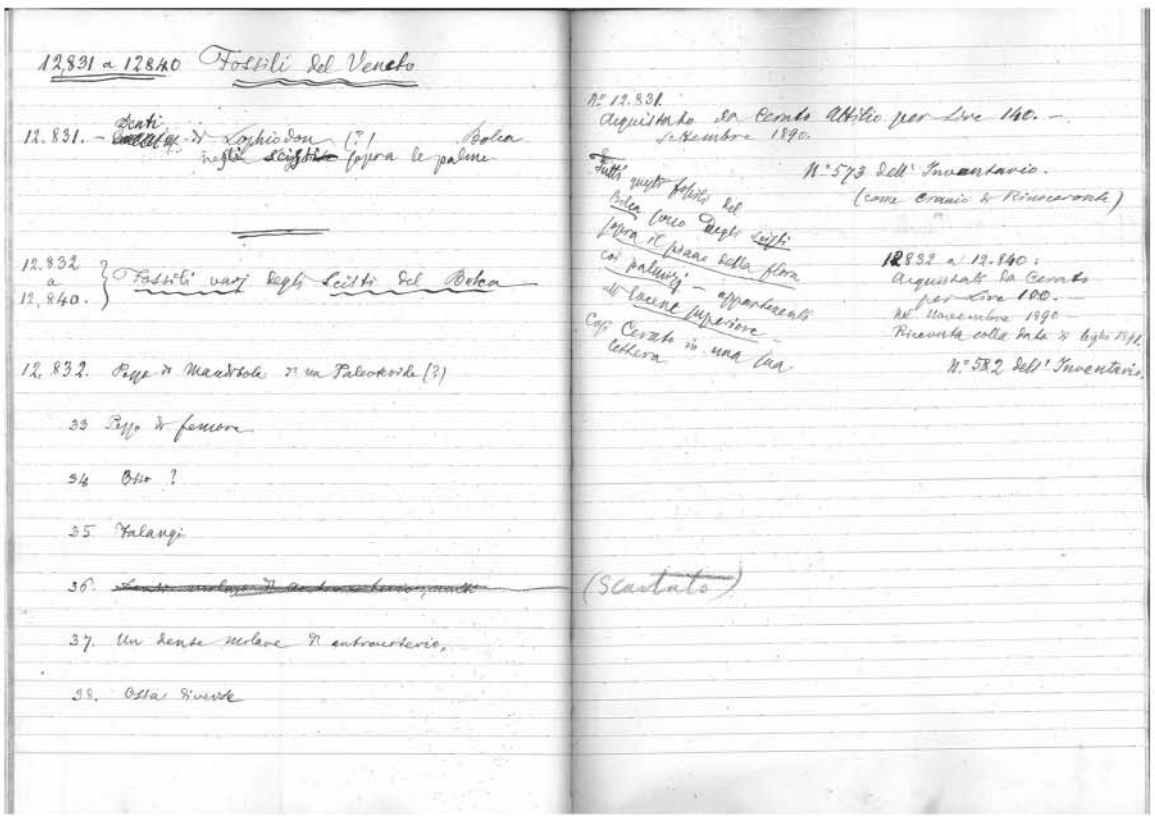 12,831 a 12840 Fossili del Veneto
Denti
12.831. – di Lophiodon (?) Bolca
negli scisti sopra le palme
12.832
a
12,840. } Fossili varj degli Scisti del Bolca
12,832. Pezzo di Mandibola di un Paleoteride (?)
33 Pezzo di femore
34 Osso ?
35 Falangi
36.
37. Un dente molare di antracoterio,
38. Ossa diverse
N.o 12.831.
Acquistato da Cerato Attilio per Lire 140. –
Settembre 1890.
N.o 573 dell' Inventario.
(come Cranio di Rinoceronte)
Tutti questi fossili del
Bolca sono degli scisti
sopra il piano della flora
coi palmizj – appartenenti
all' Eocene superiore –
Così Cerato in una sua
lettera
12832 a 12.840:
Acquistati da Cerato
per Lire 100. –
nel Novembre 1890 –
Ricevuta colla data di luglio 1891.
N.o 582 dell' Inventario.
(Scartato)